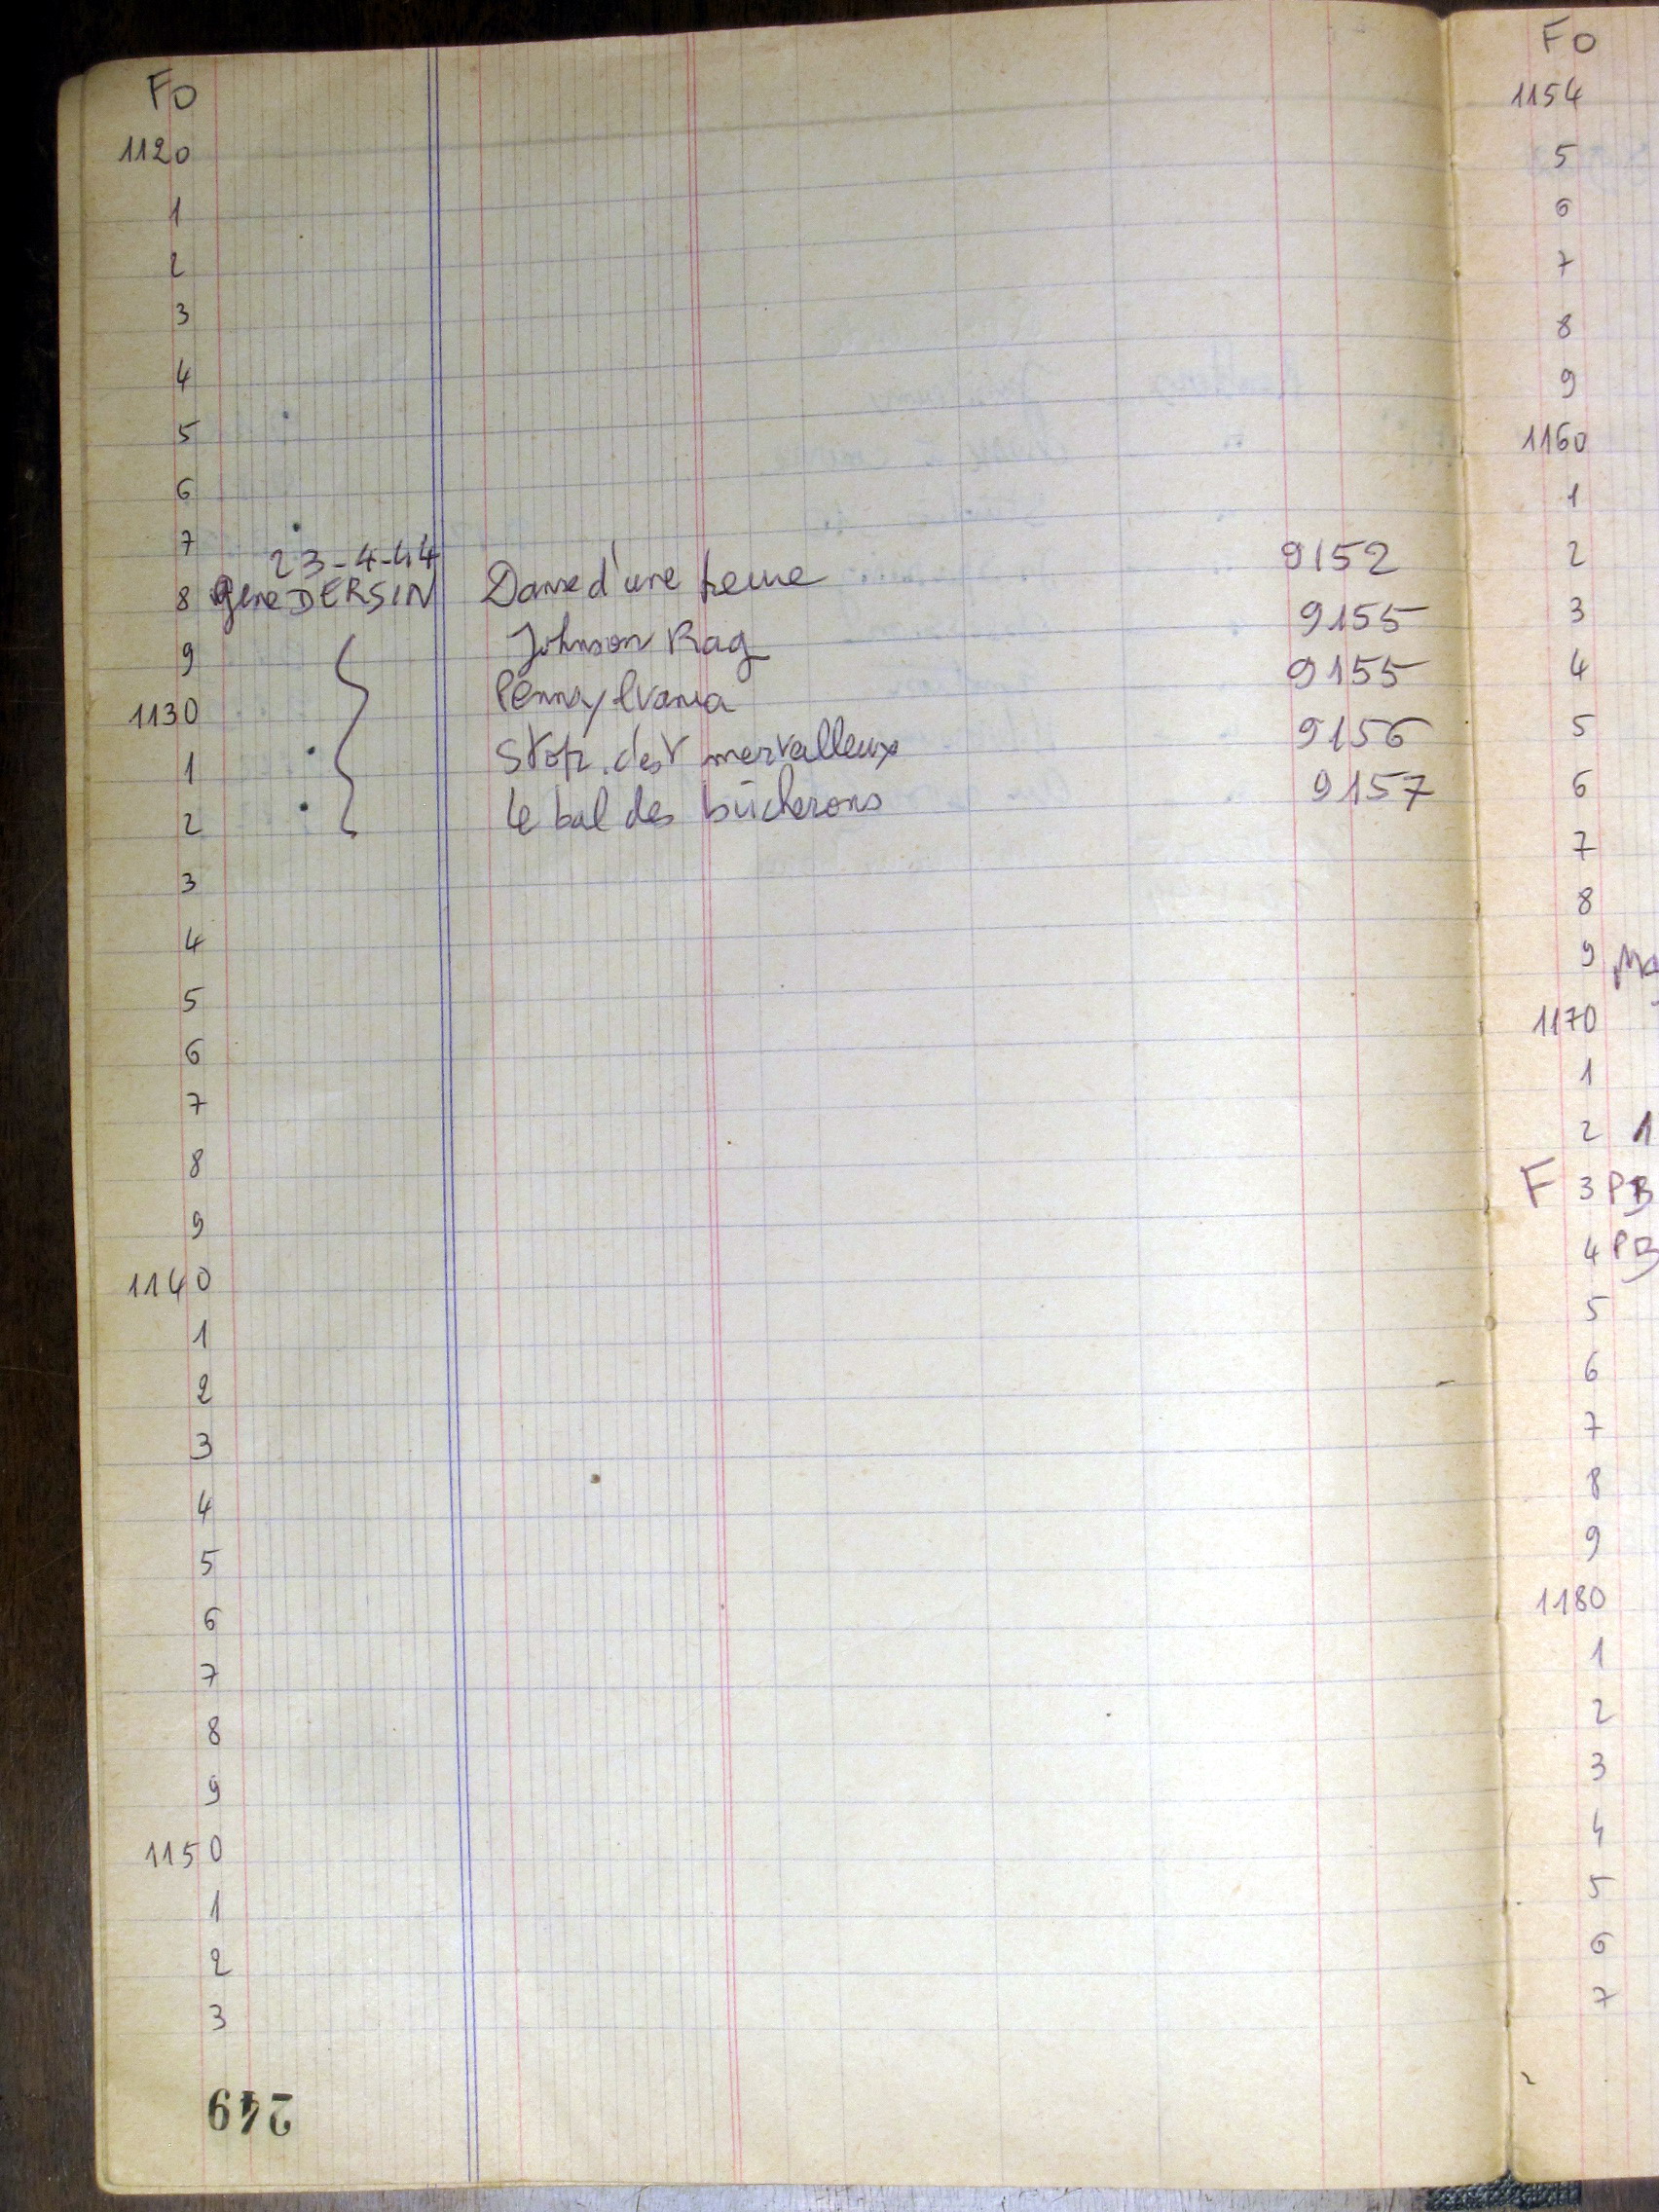 FO
1120
1
2
3
4
5
6
7 23-4-44
8 gene DERSIN Danse d'une heure 9152
9 Johnson Rag 9155
1130 Pennsylvania 9155
1 Stop. c'est merveilleux 9156
2 Le bal des bûcherons 9157
3
4
5
6
7
8
9
1140
1
2
3
4
5
6
7
8
9
1150
1
2
3
249
FO
1154
5
6
7
8
9
1160
1
2
3
4
5
6
7
8
9
1170
1
2 1
F 3 PB
4 PB
5
6
7
8
9
1180
1
2
3
4
5
6
7